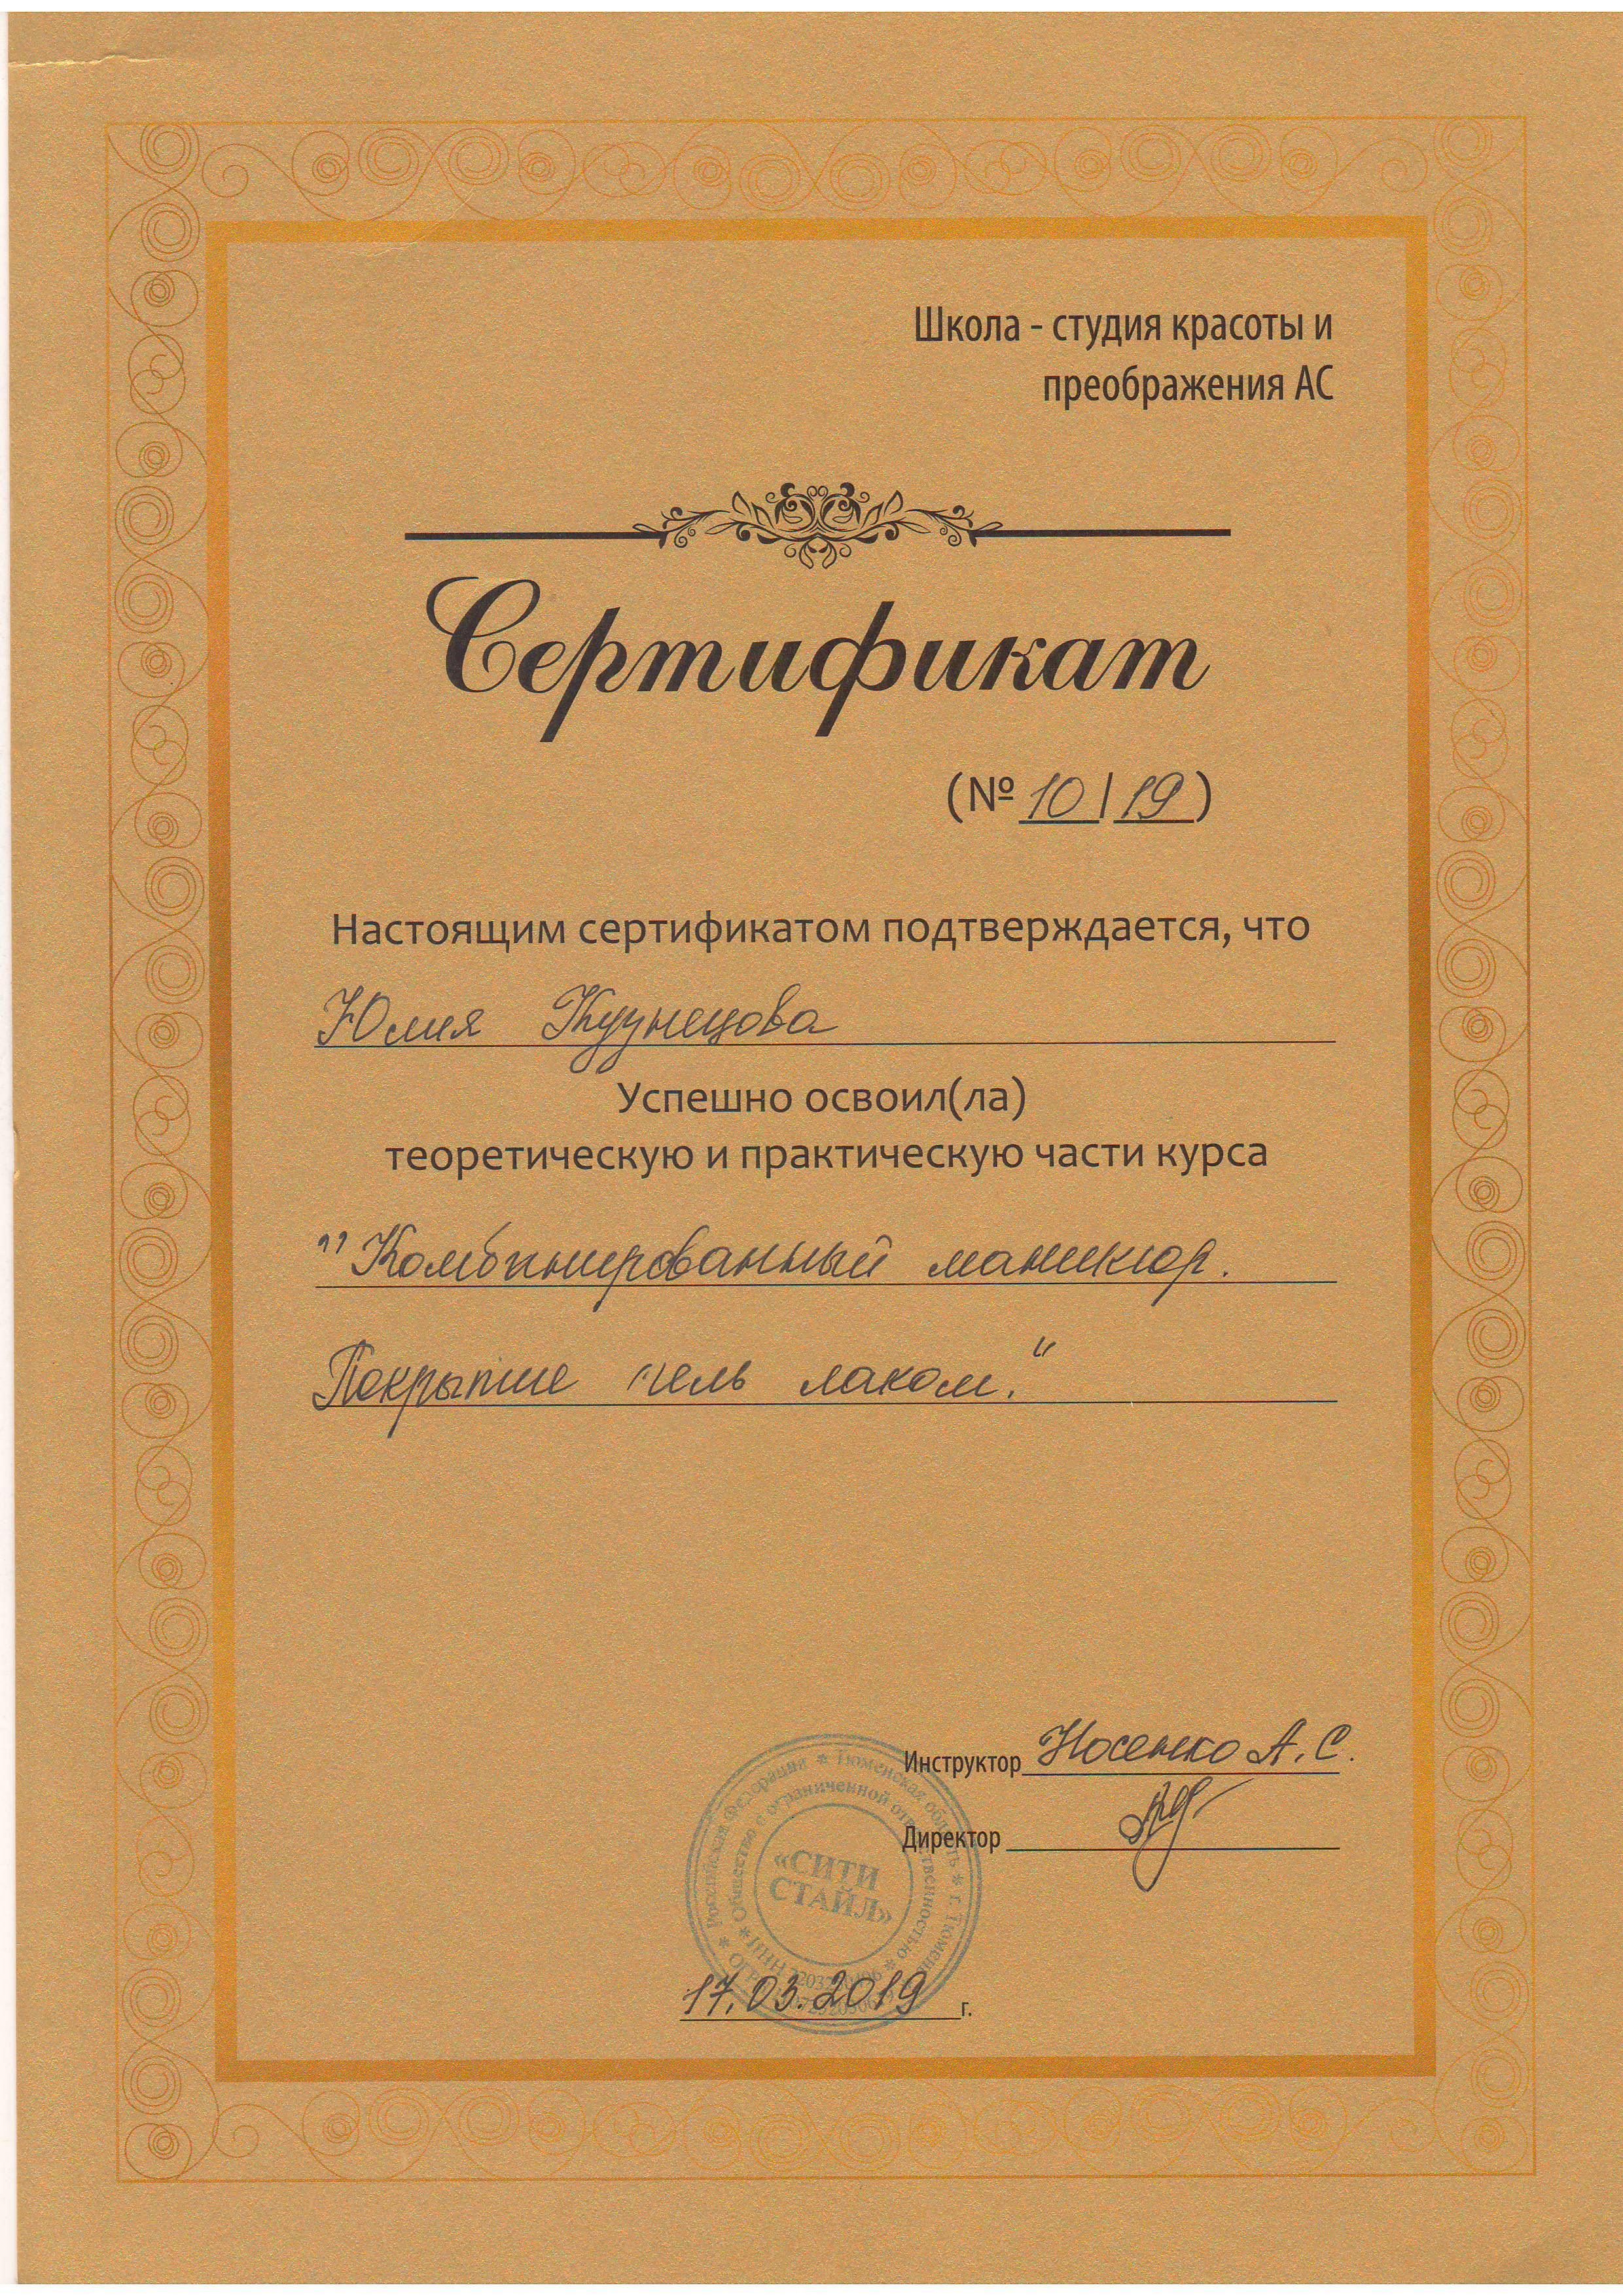 Школа - студия красоты и
преображения АС
Сертификат
(№ 10 / 19)
Настоящим сертификатом подтверждается, что
Юлия Кузнецова
Успешно освоил(ла)
теоретическую и практическую части курса
"Комбинированный маникюр.
Покрытие гель лаком."
Инструктор Носенко А. С.
Директор
Российская Федерация * Тюменская область * г. Тюмень
Общество с ограниченной ответственностью
«СИТИ
СТАЙЛ»
17.03.2019 г.